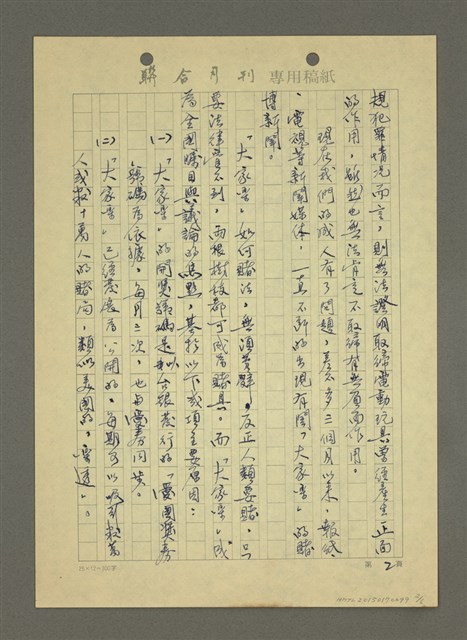 聯合月刊 專用稿紙
規犯罪情況而言，則無法證明取締電動玩具曾經產生正面
的作用，雖然也無法肯定不取締有無負面作用。
現在我們的成人有了問題，差不多三個月以來，報紙
、電視等新聞媒體，一直不斷的出現有關「大家樂」的賭
博新聞。
「大家樂」如何賭法，無須贅辭，反正人類要賭，只
要法律管不到，兩根樹枝都可成為賭具。而「大家樂」成
為全國矚目與議論的焦點，基於以下幾項主要原因：
(一)「大家樂」的開獎號碼是以台銀發行的「愛國獎券
號碼為依據，每月三次，也與獎券同步。
(二)「大家樂」已經發展為公開的，每期可以吸引數萬
人或數十萬人的賭局，類似美國的「樂透」。
第2頁
25×12=300字